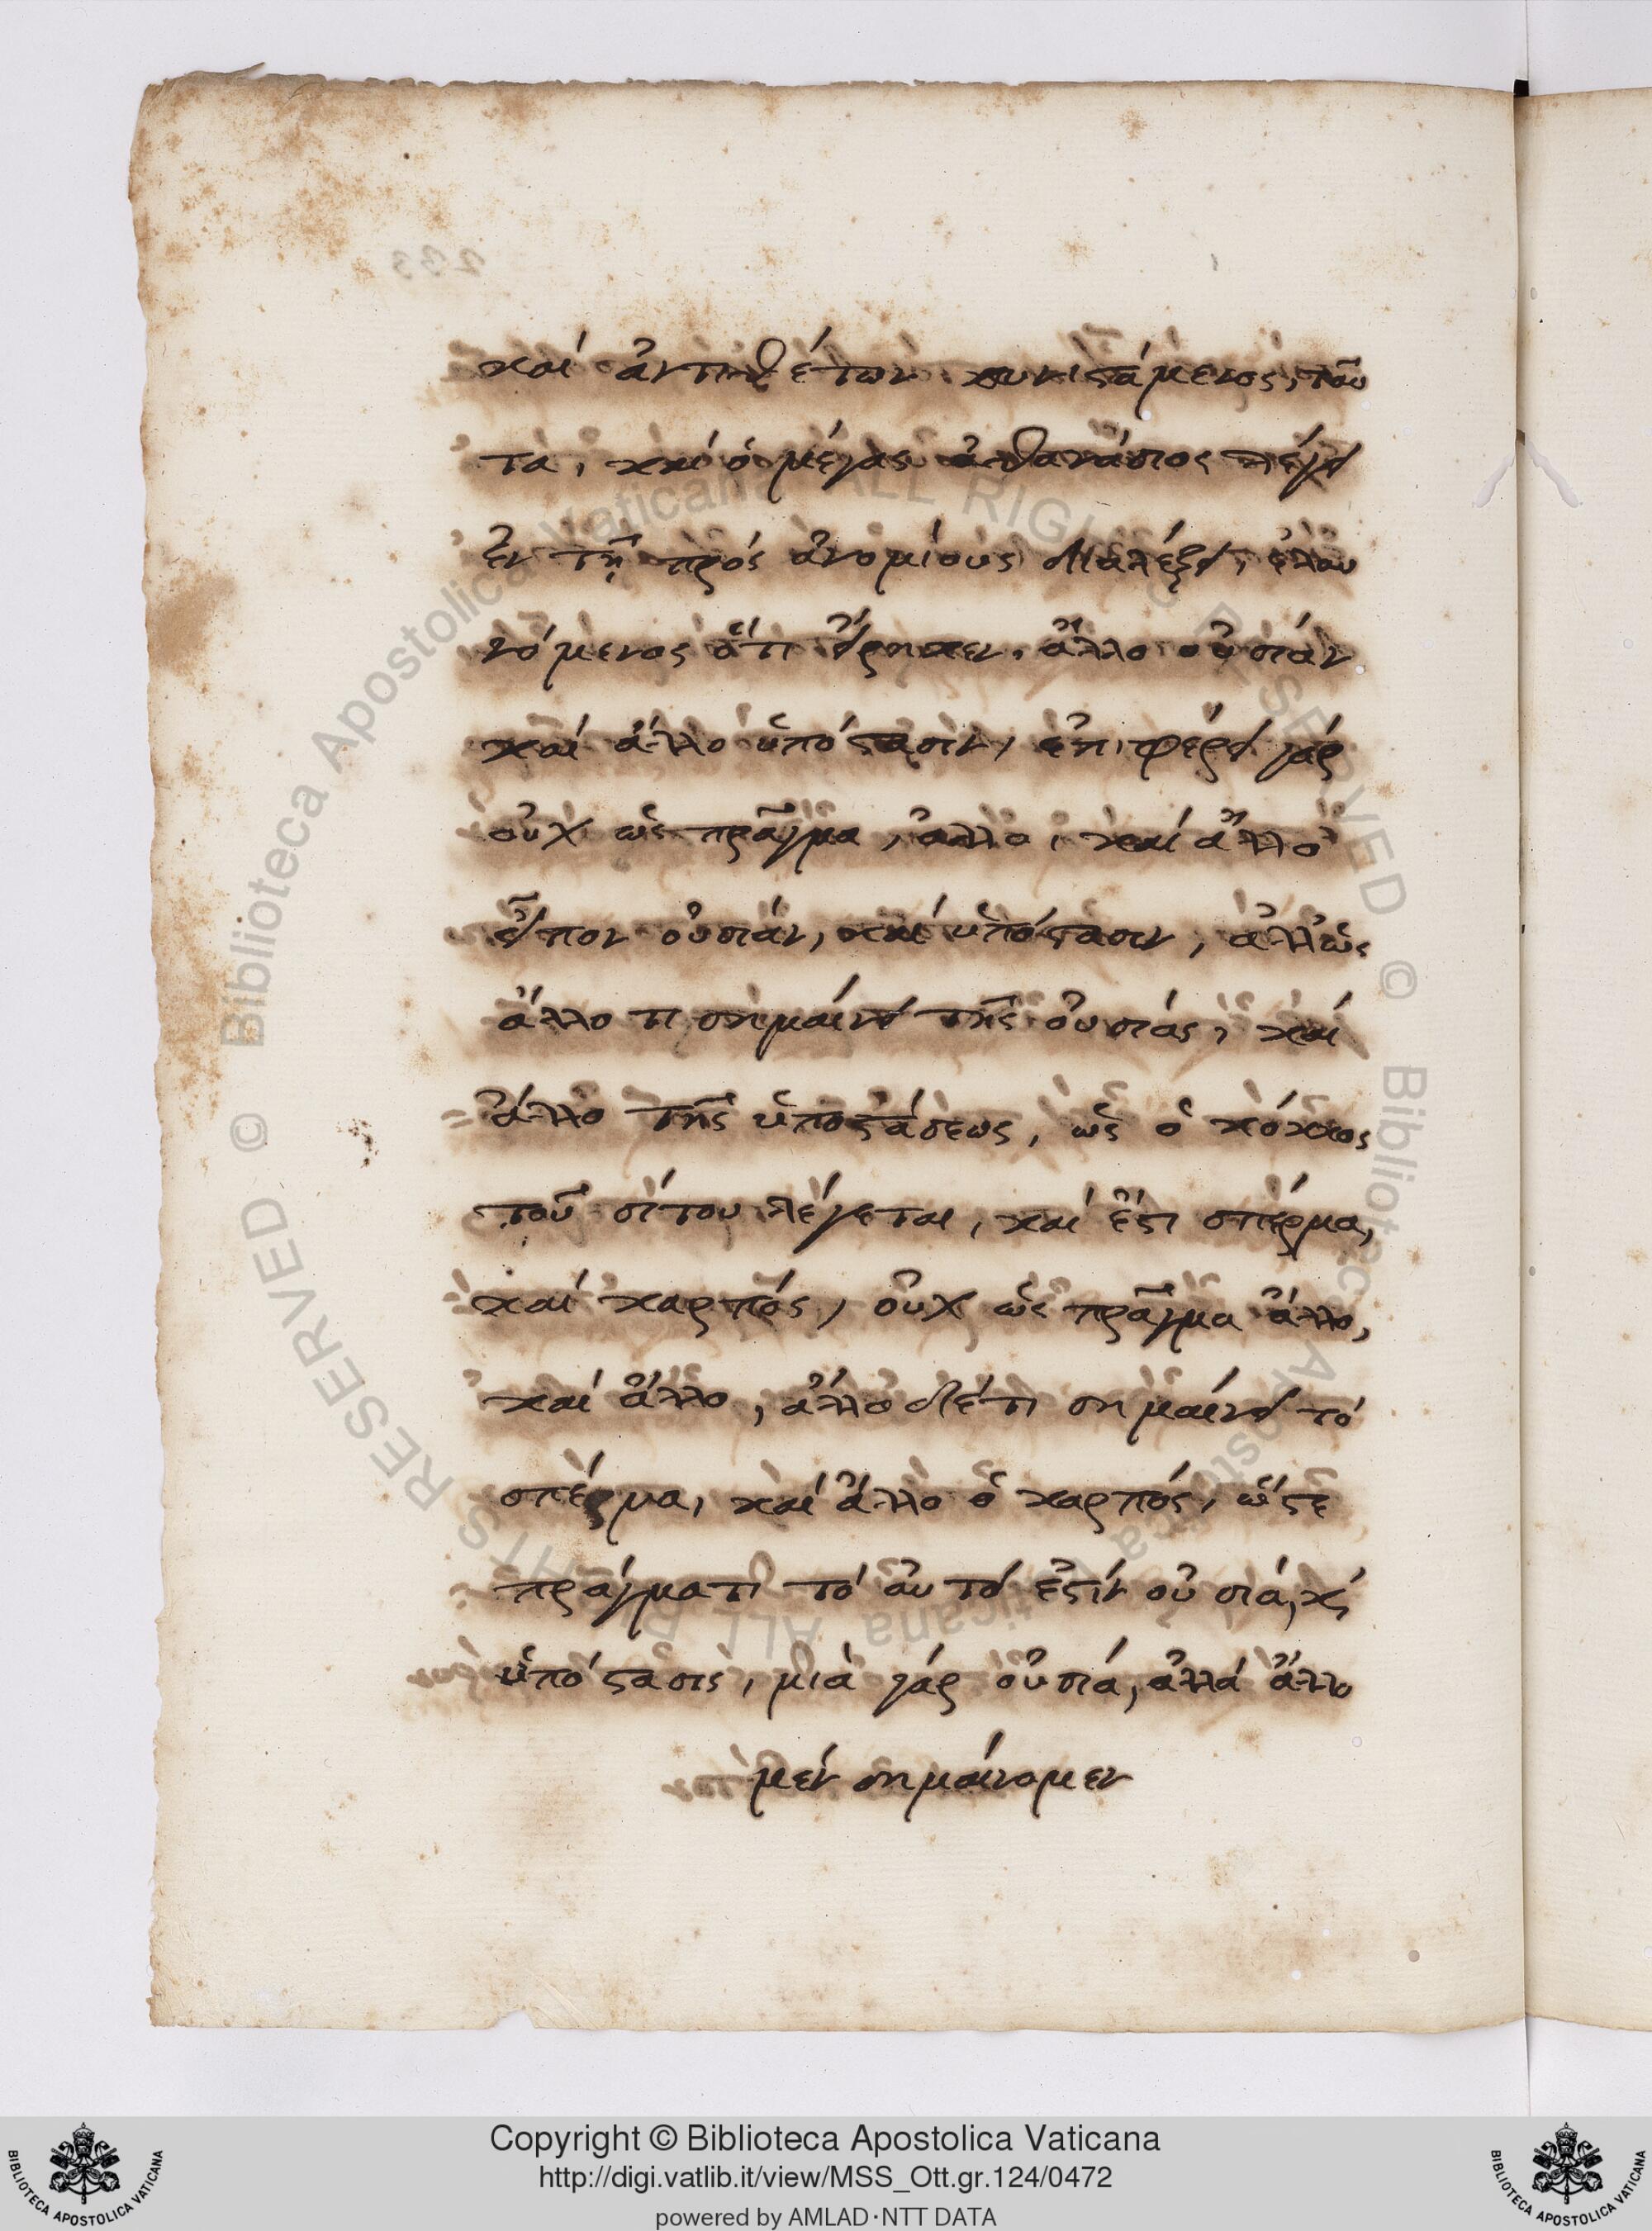 καί ἀντιθέτων συνιστάμενος, ταῦ
τα, καί ὁ μέγας ἀθανάσιος λέγει
ἐν τῇ πρός ἀνομίους διαλέξει,
νόμενος ὅτι εἴρηκεν, ἄλλο οὐσίαν
καί ἄλλο ὑπόστασιν, ἐπιφέρει γάρ
οὐχ ὡς πρᾶγμα, ἄλλο, καί ἄλλο
εἶπον οὐσίαν, καί ὑπόστασιν, ἀλλ' ὡς
ἄλλο τι σημαίνει τῆς οὐσίας, καί
ἄλλο τῆς ὑποστάσεως, ὡς ὁ κόκκος
τοῦ σίτου λέγεται, καί ἔστι σπέρμα,
καί καρπός, οὐχ ὡς πρᾶγμα ἄλλο,
καί ἄλλο, ἄλλο δέ τι σημαίνει τό
σπέρμα, καί ἄλλο ὁ καρπός, ὥστε
πράγματι τό αὐτό ἐστίν οὐσία, κ̀
ὑπόστασις, μία γάρ οὐσία, ἀλλά ἄλλο
μέν σημαίνομεν
Copyright © Biblioteca Apostolica Vaticana
http://digi.vatlib.it/view/MSS_Ott.gr.124/0472
powered by AMLAD·NTT DATA